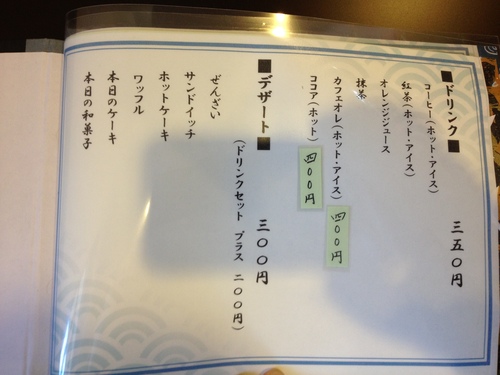 ■ドリンク■ 三五〇円
コーヒー(ホット・アイス)
紅茶(ホット・アイス)
オレンジジュース
抹茶
カフェオレ(ホット・アイス) 四〇〇円
ココア(ホット) 四〇〇円
■デザート■ 三〇〇円
(ドリンクセット プラス 二〇〇円)
ぜんざい
サンドイッチ
ホットケーキ
ワッフル
本日のケーキ
本日の和菓子